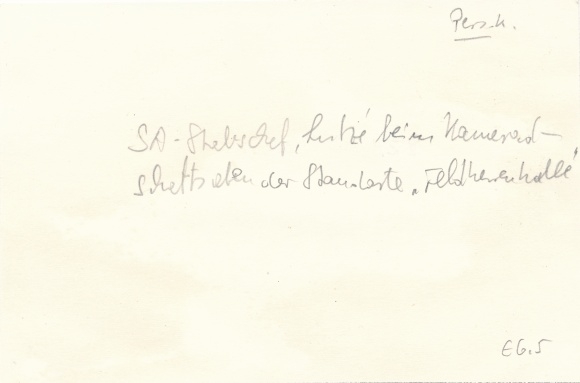 Persk.
SA-Stabschef, Lutze beim Kamerad-
schaftsabend der Standarte "Feldherrenhalle"
E6.5